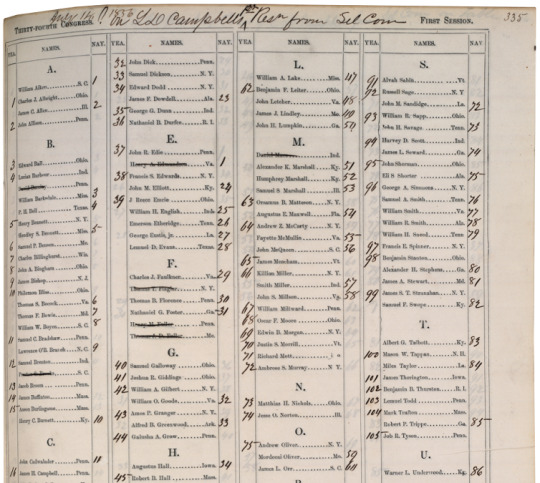 July 14, 1856 On L.D. Campbell's 1st Resn from Sel Com
THIRTY-FOURTH CONGRESS. FIRST SESSION. 335
YEA. NAMES. NAY.
A.
William Aiken S. C. 1
1 Charles J. Albright, Ohio.
James C. Allen Ill. 2
2 John Allison Penn.
B.
3 Edward Ball Ohio.
4 Lucian Barbour Ind.
William Barksdale Miss. 3
P. H. Bell Texas. 4
5 Henry Bennett N. Y.
Hendley S. Bennett Miss. 5
6 Samuel P. Benson Me.
7 Charles Billinghurst Wis.
8 John A. Bingham Ohio.
9 James Bishop N. J.
10 Philemon Bliss Ohio.
Thomas S. Bocock Va. 6
Thomas F. Bowie Md. 7
William W. Boyce S. C. 8
11 Samuel C. Bradshaw Penn.
Lawrence O'B. Branch N. C. 9
12 Samuel Brenton Ind.
S. C.
13 Jacob Broom Penn.
14 James Buffinton Mass.
15 Anson Burlingame Mass.
Henry C. Burnett Ky. 10
C.
John Cadwalader Penn. 11
16 James H. Campbell Penn.
YEA. NAMES. NAY.
32 John Dick Penn.
33 Samuel Dickson N. Y.
34 Edward Dodd N. Y.
James F. Dowdell Ala. 23
35 George G. Dunn Ind.
36 Nathaniel B. Durfee R. I.
E.
37 John R. Edie Penn.
Henry A. Edmundson Va. 1
38 Francis S. Edwards N. Y.
John M. Elliott Ky. 24
39 J Reece Emrie Ohio.
William H. English Ind. 25
Emerson Etheridge Tenn. 26
George Eustis, jr. La. 27
Lemuel D. Evans Texas. 28
F.
Charles J. Faulkner Va. 29
Thomas T. Flagler N. Y.
Thomas B. Florence Penn. 30
Nathaniel G. Foster Ga. 31
Henry M. Fuller Penn.
Thomas J. D. Fuller Me.
G.
40 Samuel Galloway Ohio.
41 Joshua R. Giddings Ohio.
42 William A. Gilbert N. Y.
William O. Goode Va. 32
43 Amos P. Granger N. Y.
Alfred B. Greenwood Ark. 33
44 Galusha A. Grow Penn.
H.
Augustus Hall Iowa. 34
45 Robert B. Hall Mass.
YEA. NAMES. NAY.
L.
William A. Lake Miss. 47
62 Benjamin F. Leiter Ohio.
John Letcher Va. 48
James J. Lindley Mo. 49
John H. Lumpkin Ga. 50
M.
Alexander K. Marshall Ky. 51
Humphrey Marshall Ky. 52
Samuel S. Marshall Ill. 53
63 Orsamus B. Matteson N. Y.
Augustus E. Maxwell Fla. 54
64 Andrew Z. McCarty N. Y.
Fayette McMullin Va. 55
John McQueen S. C. 56
65 James Meacham Vt.
66 Killian Miller N. Y.
Smith Miller Ind. 57
John S. Millson Va. 58
67 William Millward Penn.
68 Oscar F. Moore Ohio.
69 Edwin B. Morgan N. Y.
70 Justin S. Morrill Vt.
71 Richard Mott
72 Ambrose S. Murray N. Y.
N.
73 Matthias H. Nichols Ohio.
74 Jesse O. Norton Ill.
O.
75 Andrew Oliver N. Y.
Mordecai Oliver Mo. 59
James L. Orr S. C. 60
YEA. NAMES. NAY
S.
91 Alvah Sabin Vt.
92 Russell Sage N. Y.
John M. Sandidge La. 72
93 William R. Sapp Ohio.
John H. Savage Tenn. 73
94 Harvey D. Scott Ind.
James L. Seward Ga. 74
95 John Sherman Ohio.
Eli S. Shorter Ala. 75
96 George A. Simmons N. Y.
Samuel A. Smith Tenn. 76
William Smith Va. 77
William R. Smith Ala. 78
William H. Sneed Tenn. 79
97 Francis E. Spinner N. Y.
98 Benjamin Stanton Ohio.
Alexander H. Stephens Ga. 80
James A. Stewart Md. 81
99 James S. T. Stranahan N. Y.
Samuel F. Swope Ky. 82
T.
Albert G. Talbott Ky. 83
100 Mason W. Tappan N. H.
Miles Taylor La. 84
101 James Thorington Iowa.
102 Benjamin B. Thurston R. I.
103 Lemuel Todd Penn.
104 Mark Trafton Mass.
Robert P. Trippe Ga. 85
105 Job R. Tyson Penn.
U.
Warner L. Underwood Ky. 86